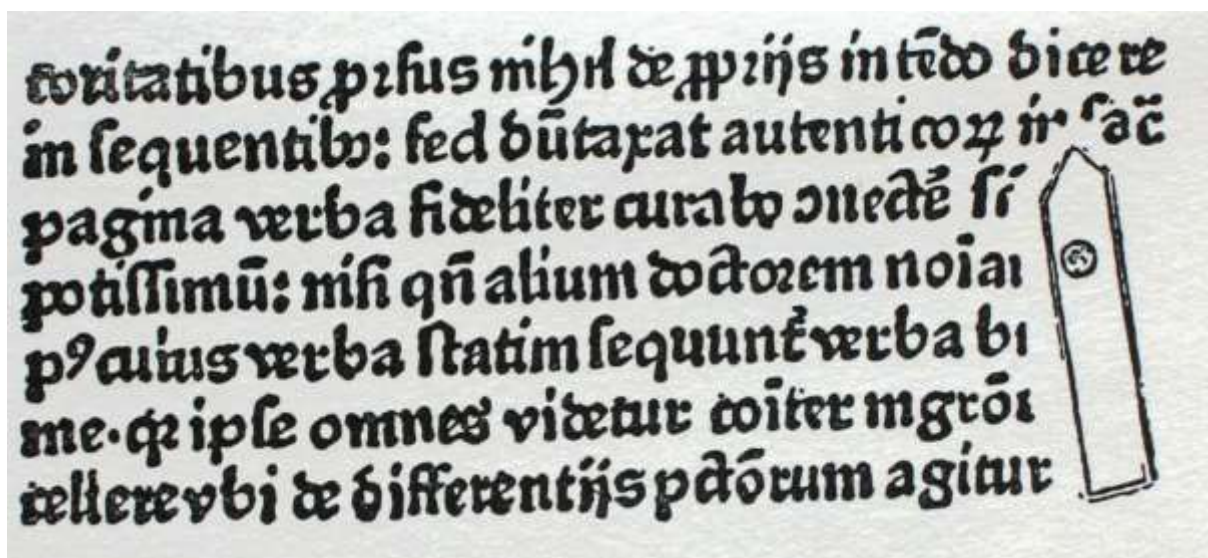 toritatibus ꝓrsus nihil de ꝓprijs intēdo dicere
in sequentibꝰ: sed dūtaxat autenticoꝝ sac̄
pagina verba fideliter curabo ꝯnectē si
potissimū: nisi qn̄ alium doctorem noīa
pꝰ cuius verba statim sequunt᷑ verba
me. qꝛ ipse omnes videtur cōīter
cellere vbi de differentijs pctōrum agitur